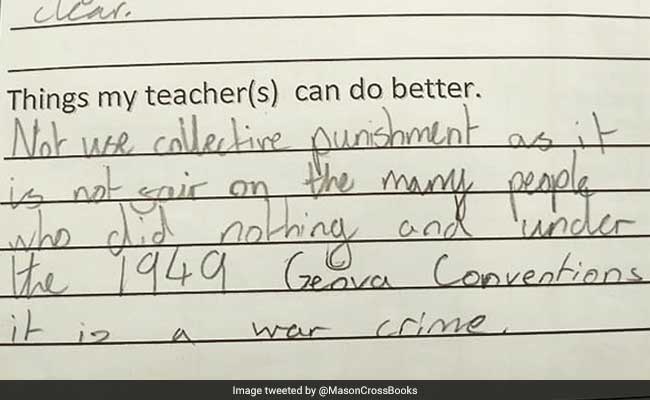 clear.
Things my teacher(s) can do better.
Not use collective punishment as it
is not fair on the many people
who did nothing and under
the 1949 Genva Conventions
it is a war crime.
Image tweeted by @MasonCrossBooks